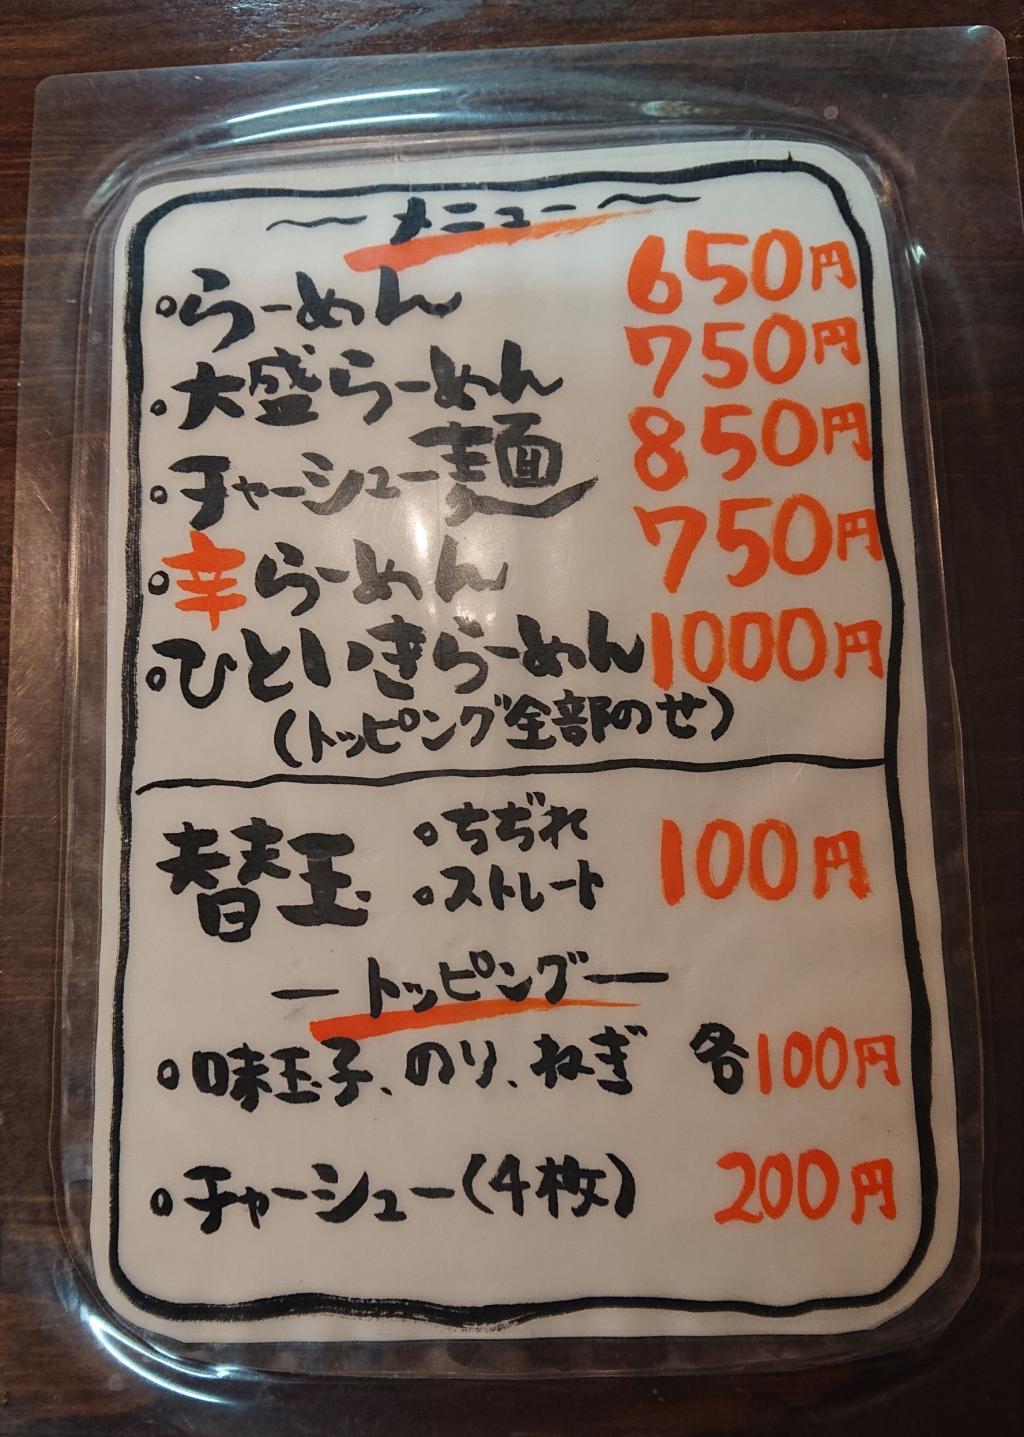 ～メニュー～
・らーめん 650円
・大盛らーめん 750円
・チャーシュー麺 850円
・辛らーめん 750円
・ひといきらーめん 1000円
(トッピング全部のせ)
替玉 ・ちぢれ ・ストレート 100円
―トッピング―
・味玉子、のり、ねぎ 各100円
・チャーシュー(4枚) 200円